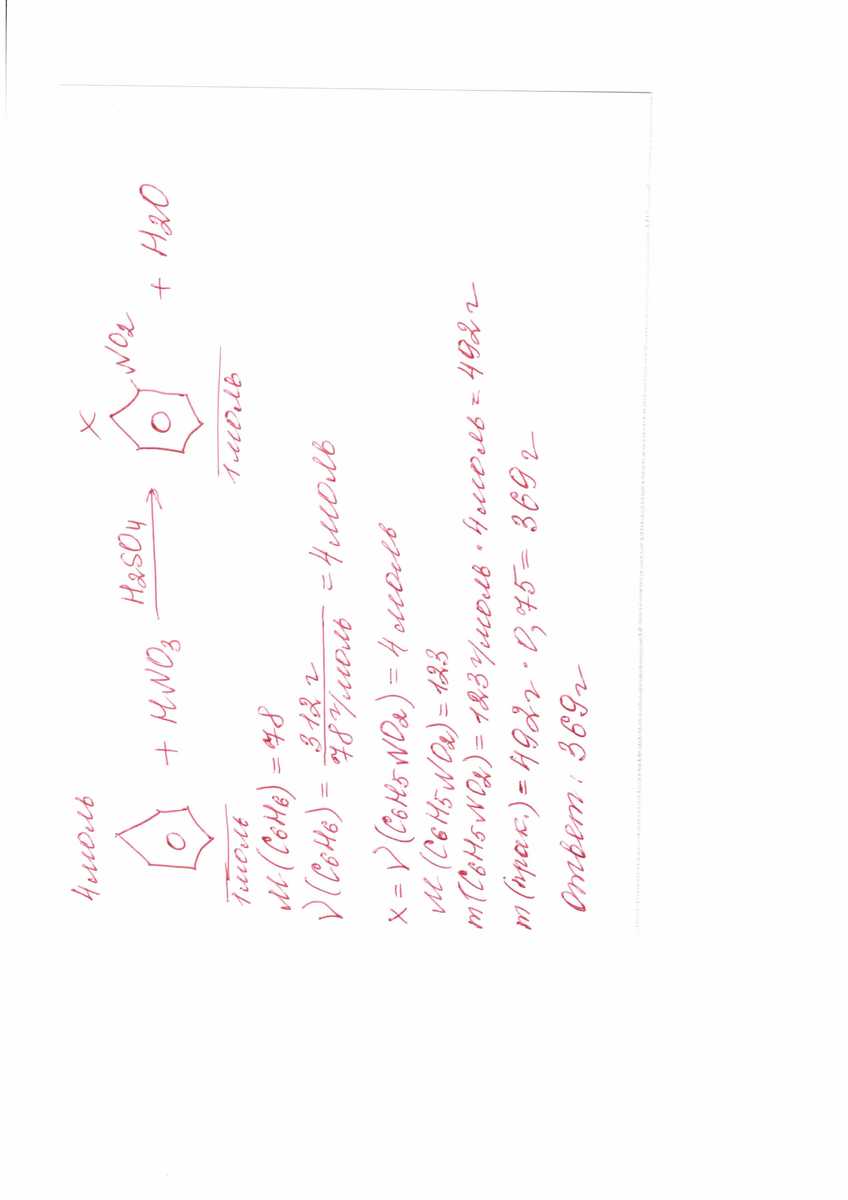 4 моль x
+ HNO3 H2SO4 NO2 + H2O
1 моль 1 моль
M(C6H6) = 78
ν(C6H6) = 312 г / 78 г/моль = 4 моль
x = ν(C6H5NO2) = 4 моль
M(C6H5NO2) = 123
m(C6H5NO2) = 123 г/моль · 4 моль = 492 г
m(прак.) = 492 г · 0,75 = 369 г
Ответ: 369 г